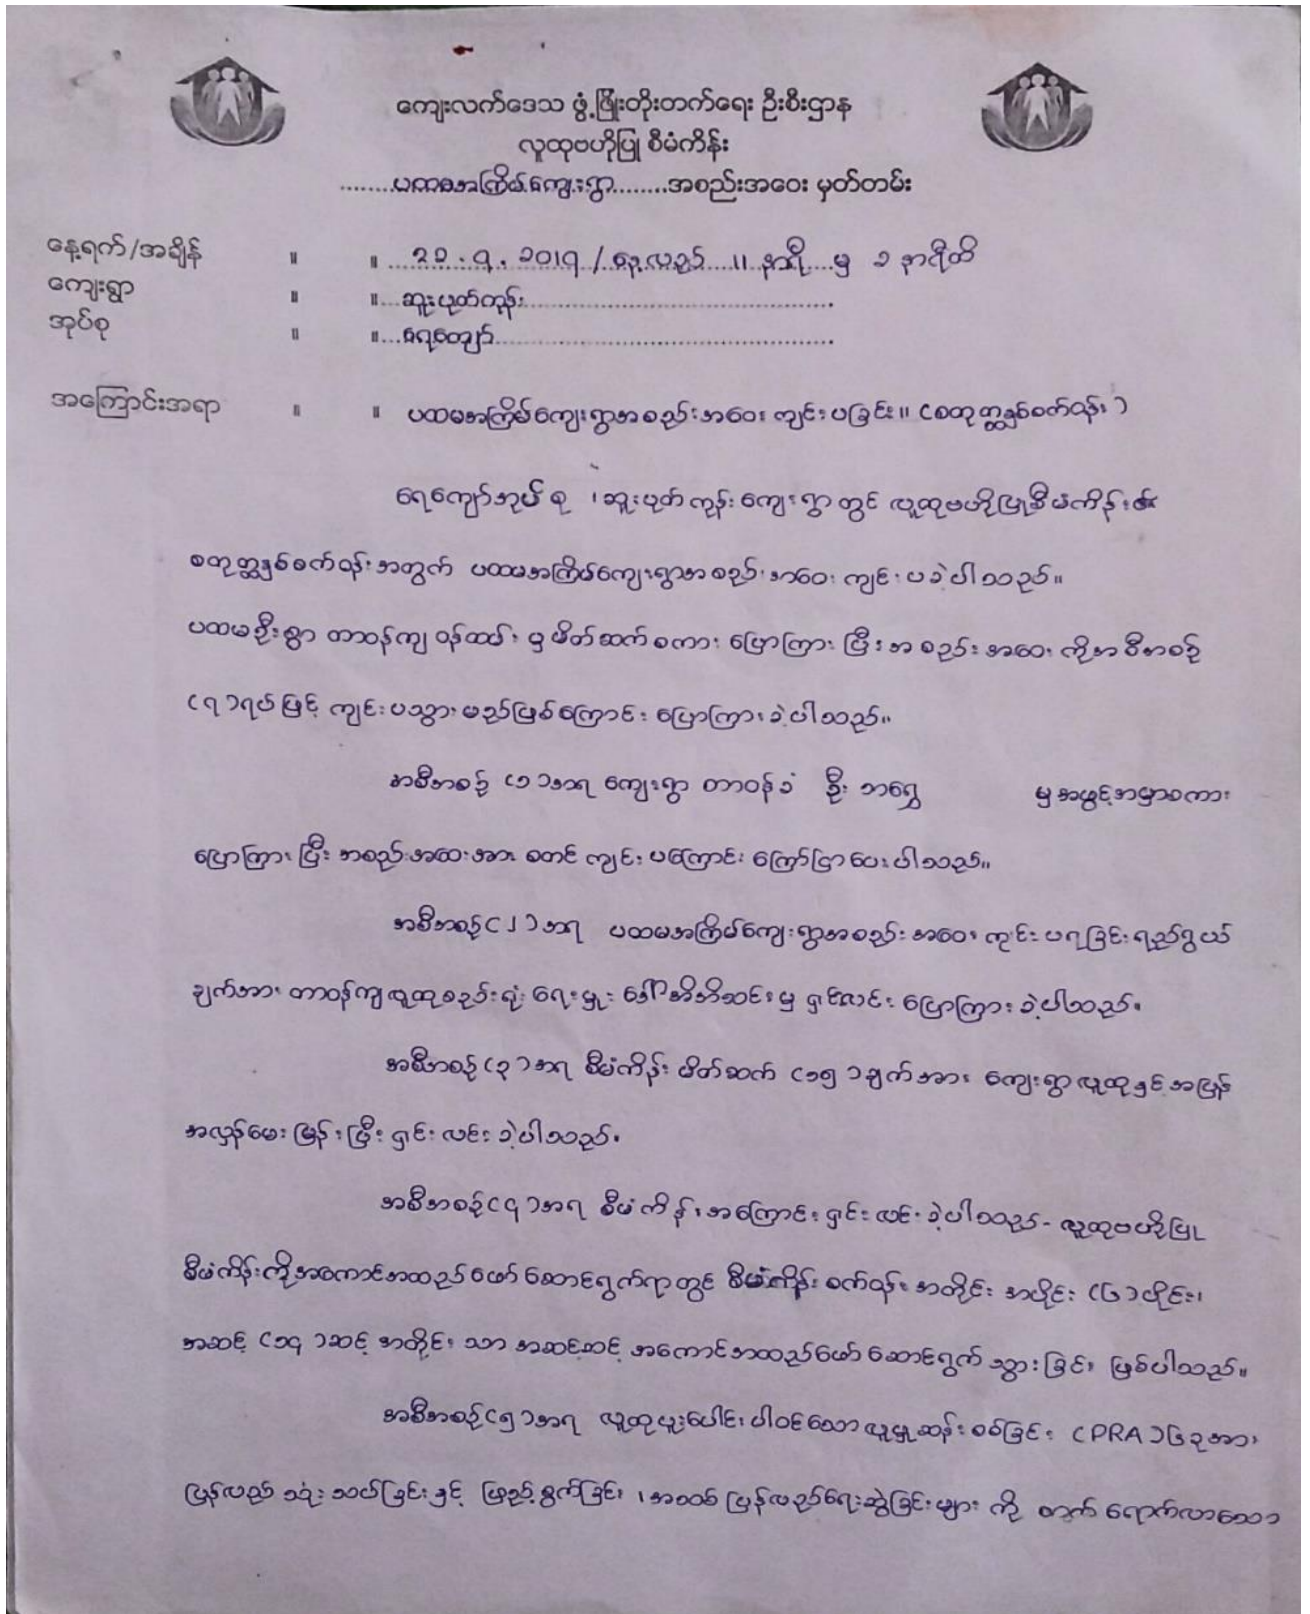 ကျေးလက်ဒေသ ဖွံ့ဖြိုးတိုးတက်ရေး ဦးစီးဌာန
လူထုဗဟိုပြု စီမံကိန်း
........ပထမအကြိမ်ကျေးရွာ........အစည်းအဝေး မှတ်တမ်း
နေ့ရက်/အချိန် ။ ။ ၂၁.၇.၁၀၁၇/နေ့လည် ။ နာရီ မှ ၁ နာရီထိ
ကျေးရွာ ။ ။ ဆူးပုတ်ကုန်း
အုပ်စု ။ ။ ရေကျော်
အကြောင်းအရာ ။ ။ ပထမအကြိမ်ကျေးရွာအစည်းအဝေး ကျင်းပခြင်း။ (စတုတ္ထနှစ်စက်ဝန်း)
ရေကျော်အုပ်စု ၊ဆူးပုတ်ကုန်းကျေးရွာတွင် လူထုဗဟိုပြုစီမံကိန်း၏
စတုတ္ထနှစ်စက်ဝန်းအတွက် ပထမအကြိမ်ကျေးရွာအစည်းအဝေး ကျင်းပခဲ့ပါသည်။
ပထမဦးစွာ တာဝန်ကျဝန်ထမ်းမှ မိတ်ဆက်စကား ပြောကြားပြီး အစည်းအဝေးကို အစီအစဉ်
(၇)ရပ်ဖြင့် ကျင်းပသွားမည်ဖြစ်ကြောင်း ပြောကြားခဲ့ပါသည်။
အစီအစဉ် (၁)အရ ကျေးရွာ တာဝန်ခံ ဦးဘရွှေ မှ အဖွင့်အမှာစကား
ပြောကြားပြီး အစည်းအဝေးအား စတင် ကျင်းပကြောင်း ကြော်ငြာပေးပါသည်။
အစီအစဉ်(၂)အရ ပထမအကြိမ်ကျေးရွာအစည်းအဝေး ကျင်းပရခြင်းရည်ရွယ်
ချက်အား တာဝန်ကျလူထုစည်းရုံးရေးမှူး ဒေါ်အိအိဆင်းမှ ရှင်းလင်း ပြောကြားခဲ့ပါသည်။
အစီအစဉ်(၃)အရ စီမံကိန်း မိတ်ဆက် (၁၅)ချက်အား ကျေးရွာလူထုနှင့် အပြန်
အလှန်မေးမြန်းပြီး ရှင်းလင်းခဲ့ပါသည်။
အစီအစဉ်(၄)အရ စီမံကိန်းအကြောင်း ရှင်းလင်းခဲ့ပါသည်- လူထုဗဟိုပြု
စီမံကိန်းကိုအကောင်အထည်ဖော်ဆောင်ရွက်ရာတွင် စီမံကိန်းစက်ဝန်းအတိုင်း အပိုင်း (၆)ပိုင်း၊
အဆင့် (၁၄)ဆင့် အတိုင်းသာ အဆင့်ဆင့် အကောင်အထည်ဖော် ဆောင်ရွက်သွားခြင်း ဖြစ်ပါသည်။
အစီအစဉ်(၅)အရ လူထုပူးပေါင်းပါဝင်သောလူမှုဆန်းစစ်ခြင်း (PRA)၆ခုအား
ပြန်လည် သုံးသပ်ခြင်းနှင့် ဖြည့်စွက်ခြင်း၊ အသစ်ပြန်လည်ရေးဆွဲခြင်းများကို တက်ရောက်လာသော